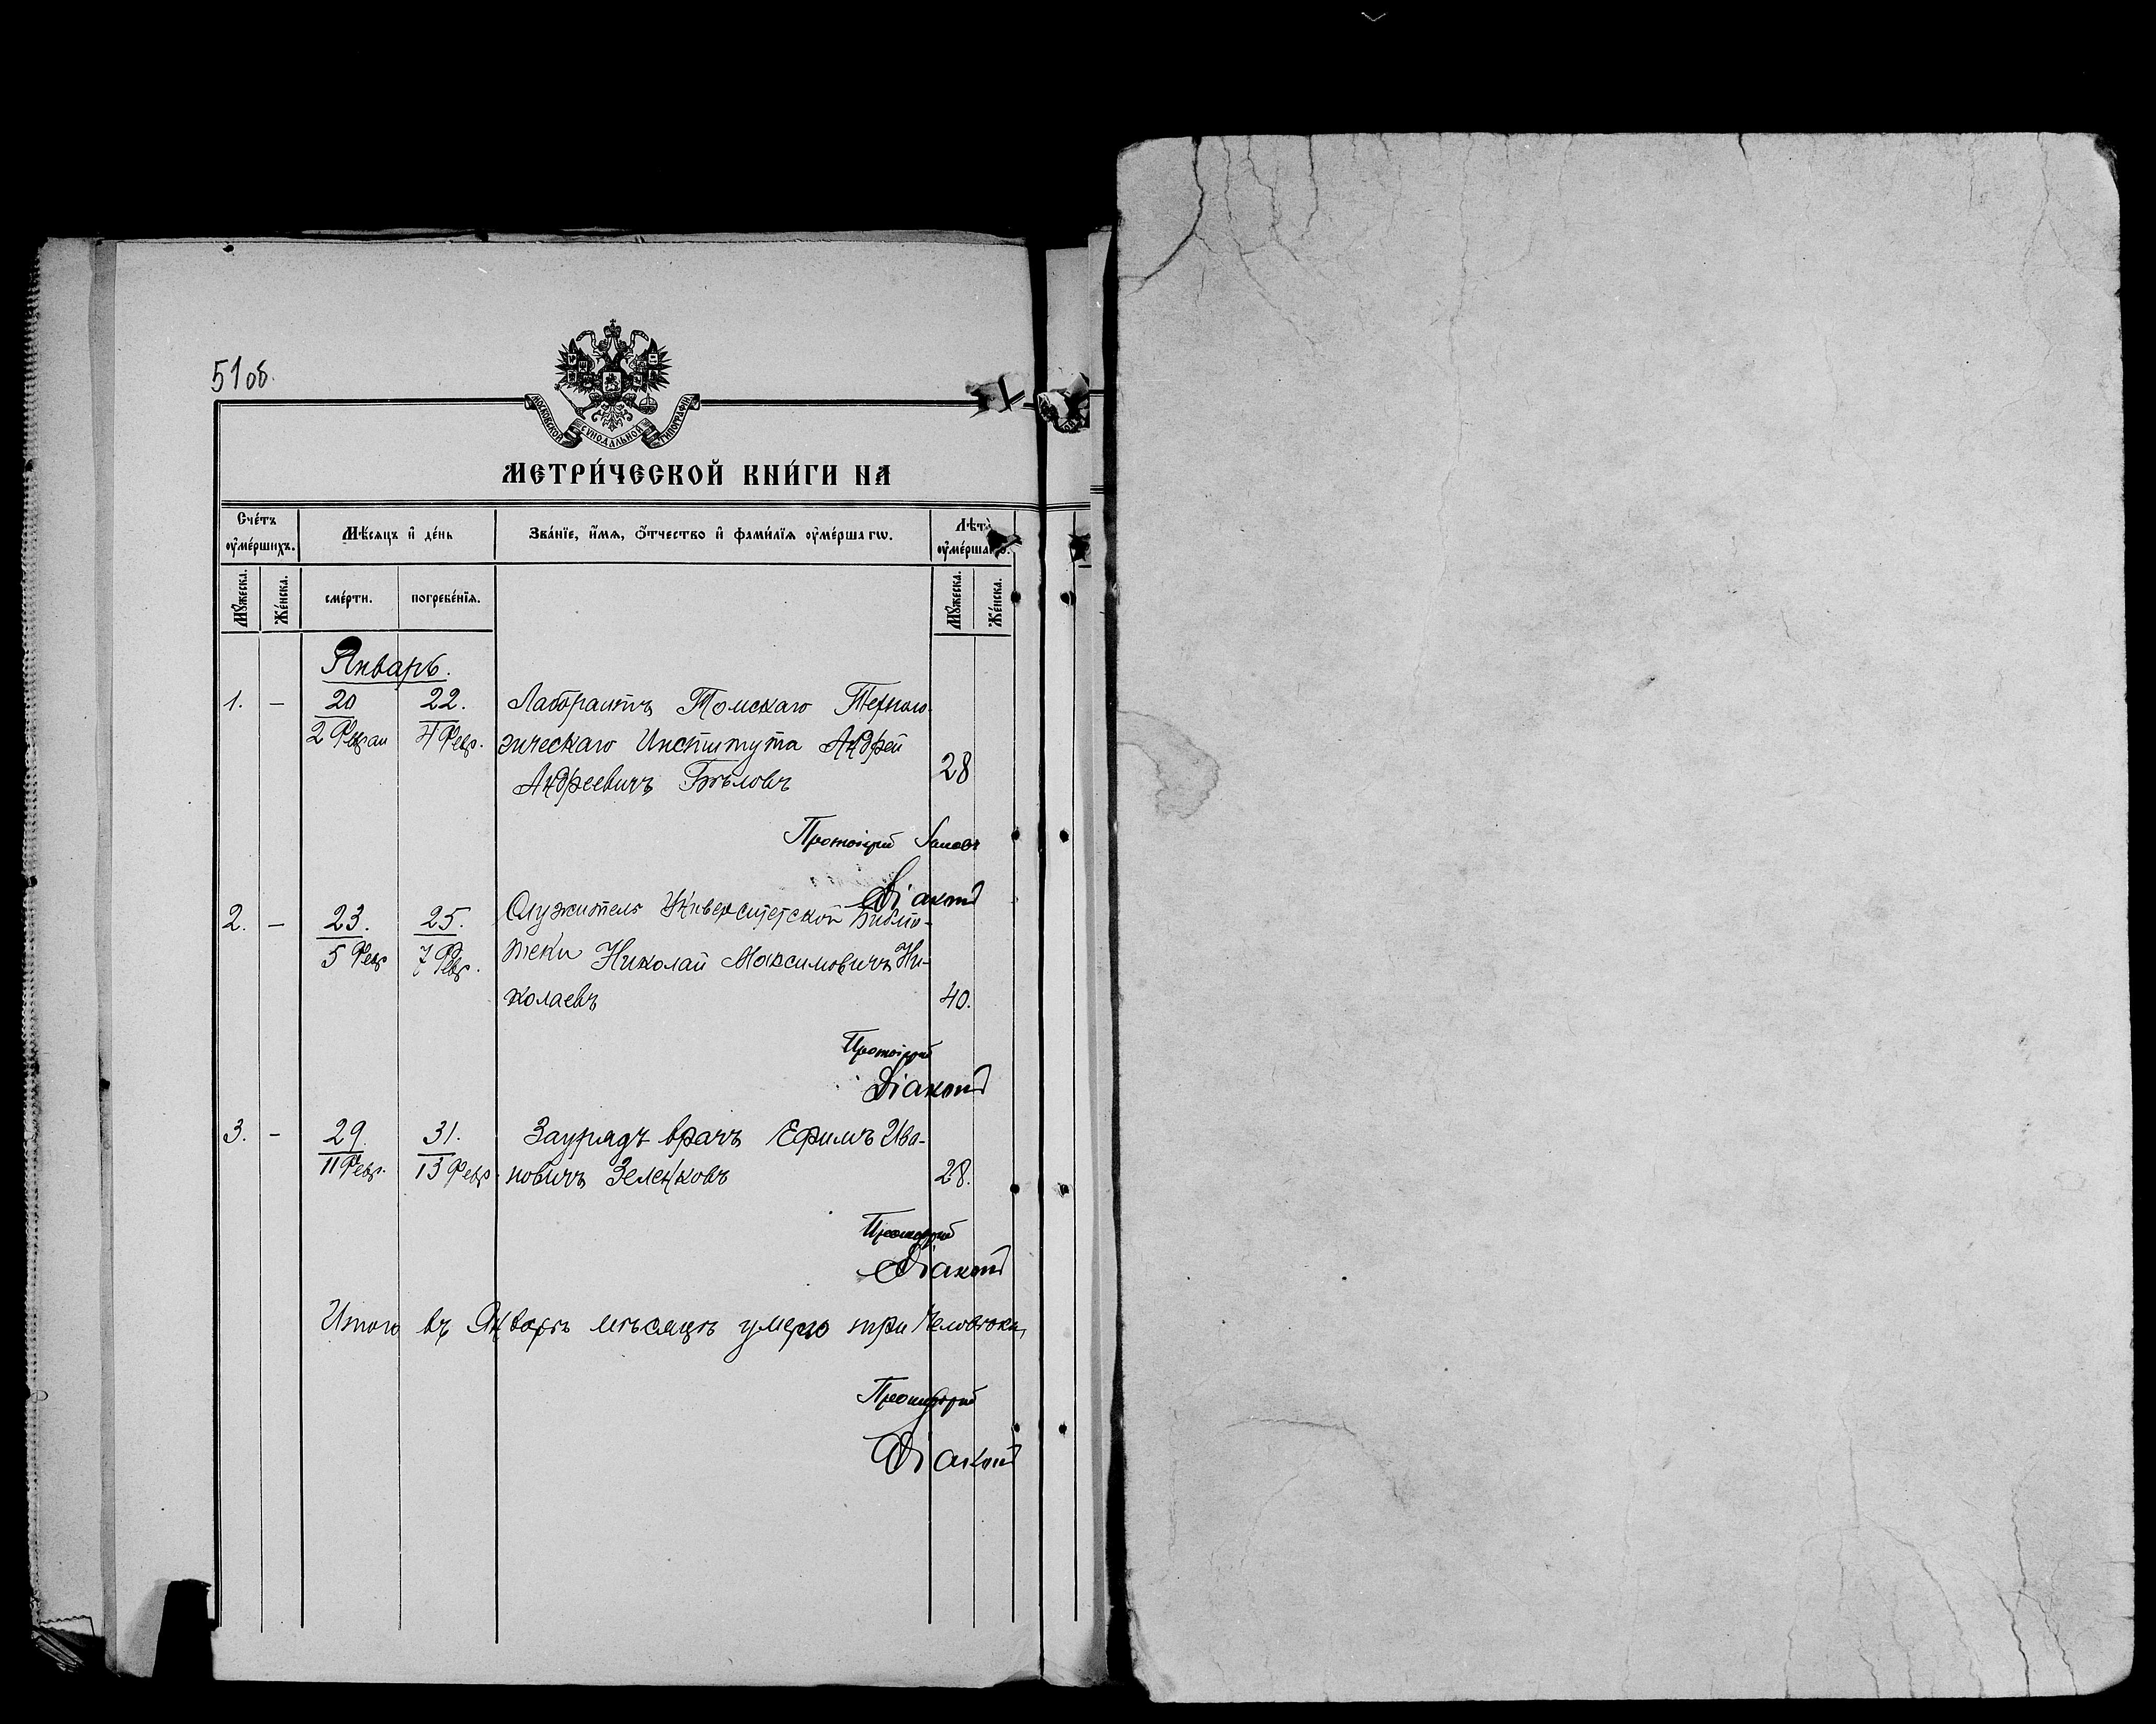 51 об.
МОСКОВСКОЙ СУНОДАЛЬНОЙ ТИПОГРАФІИ
МЕТРИ́ЧЕСКОЙ КНИ́ГИ НА
Сче́тъ оу҆ме́ршихъ.
Мѣ́сяцъ и҆ де́нь
Зва́нїе, и҆́мѧ, ѻ҆́тчество и҆ фами́лїѧ оу҆ме́ршагѡ.
Лѣтъ оу҆ме́ршагѡ.
Мꙋ́жеска.
Же́нска.
сме́рти.
погребе́нїѧ.
Мꙋ́жеска.
Же́нска.
Январь.
1. — 20 22. Лаборантъ Томскаго Техноло-
2 Феврал 4 Февр. гическаго Института Андрей
Андреевичъ Бѣловъ 28
Протоіерей
Діаконъ
2. — 23. 25. Служитель Университетской Библіо-
5 Февр 7 Февр. теки Николай Максимовичъ Ни-
колаевъ 40.
Протоіерей
Діаконъ
3. — 29. 31. Заурядъ врачъ Ефимъ Ива-
11 Февр. 13 Февр. новичъ Зеленковъ 28.
Протоіерей
Діаконъ
Итого въ Январѣ мѣсяцѣ умерло три человѣка,
Протоіерей
Діаконъ